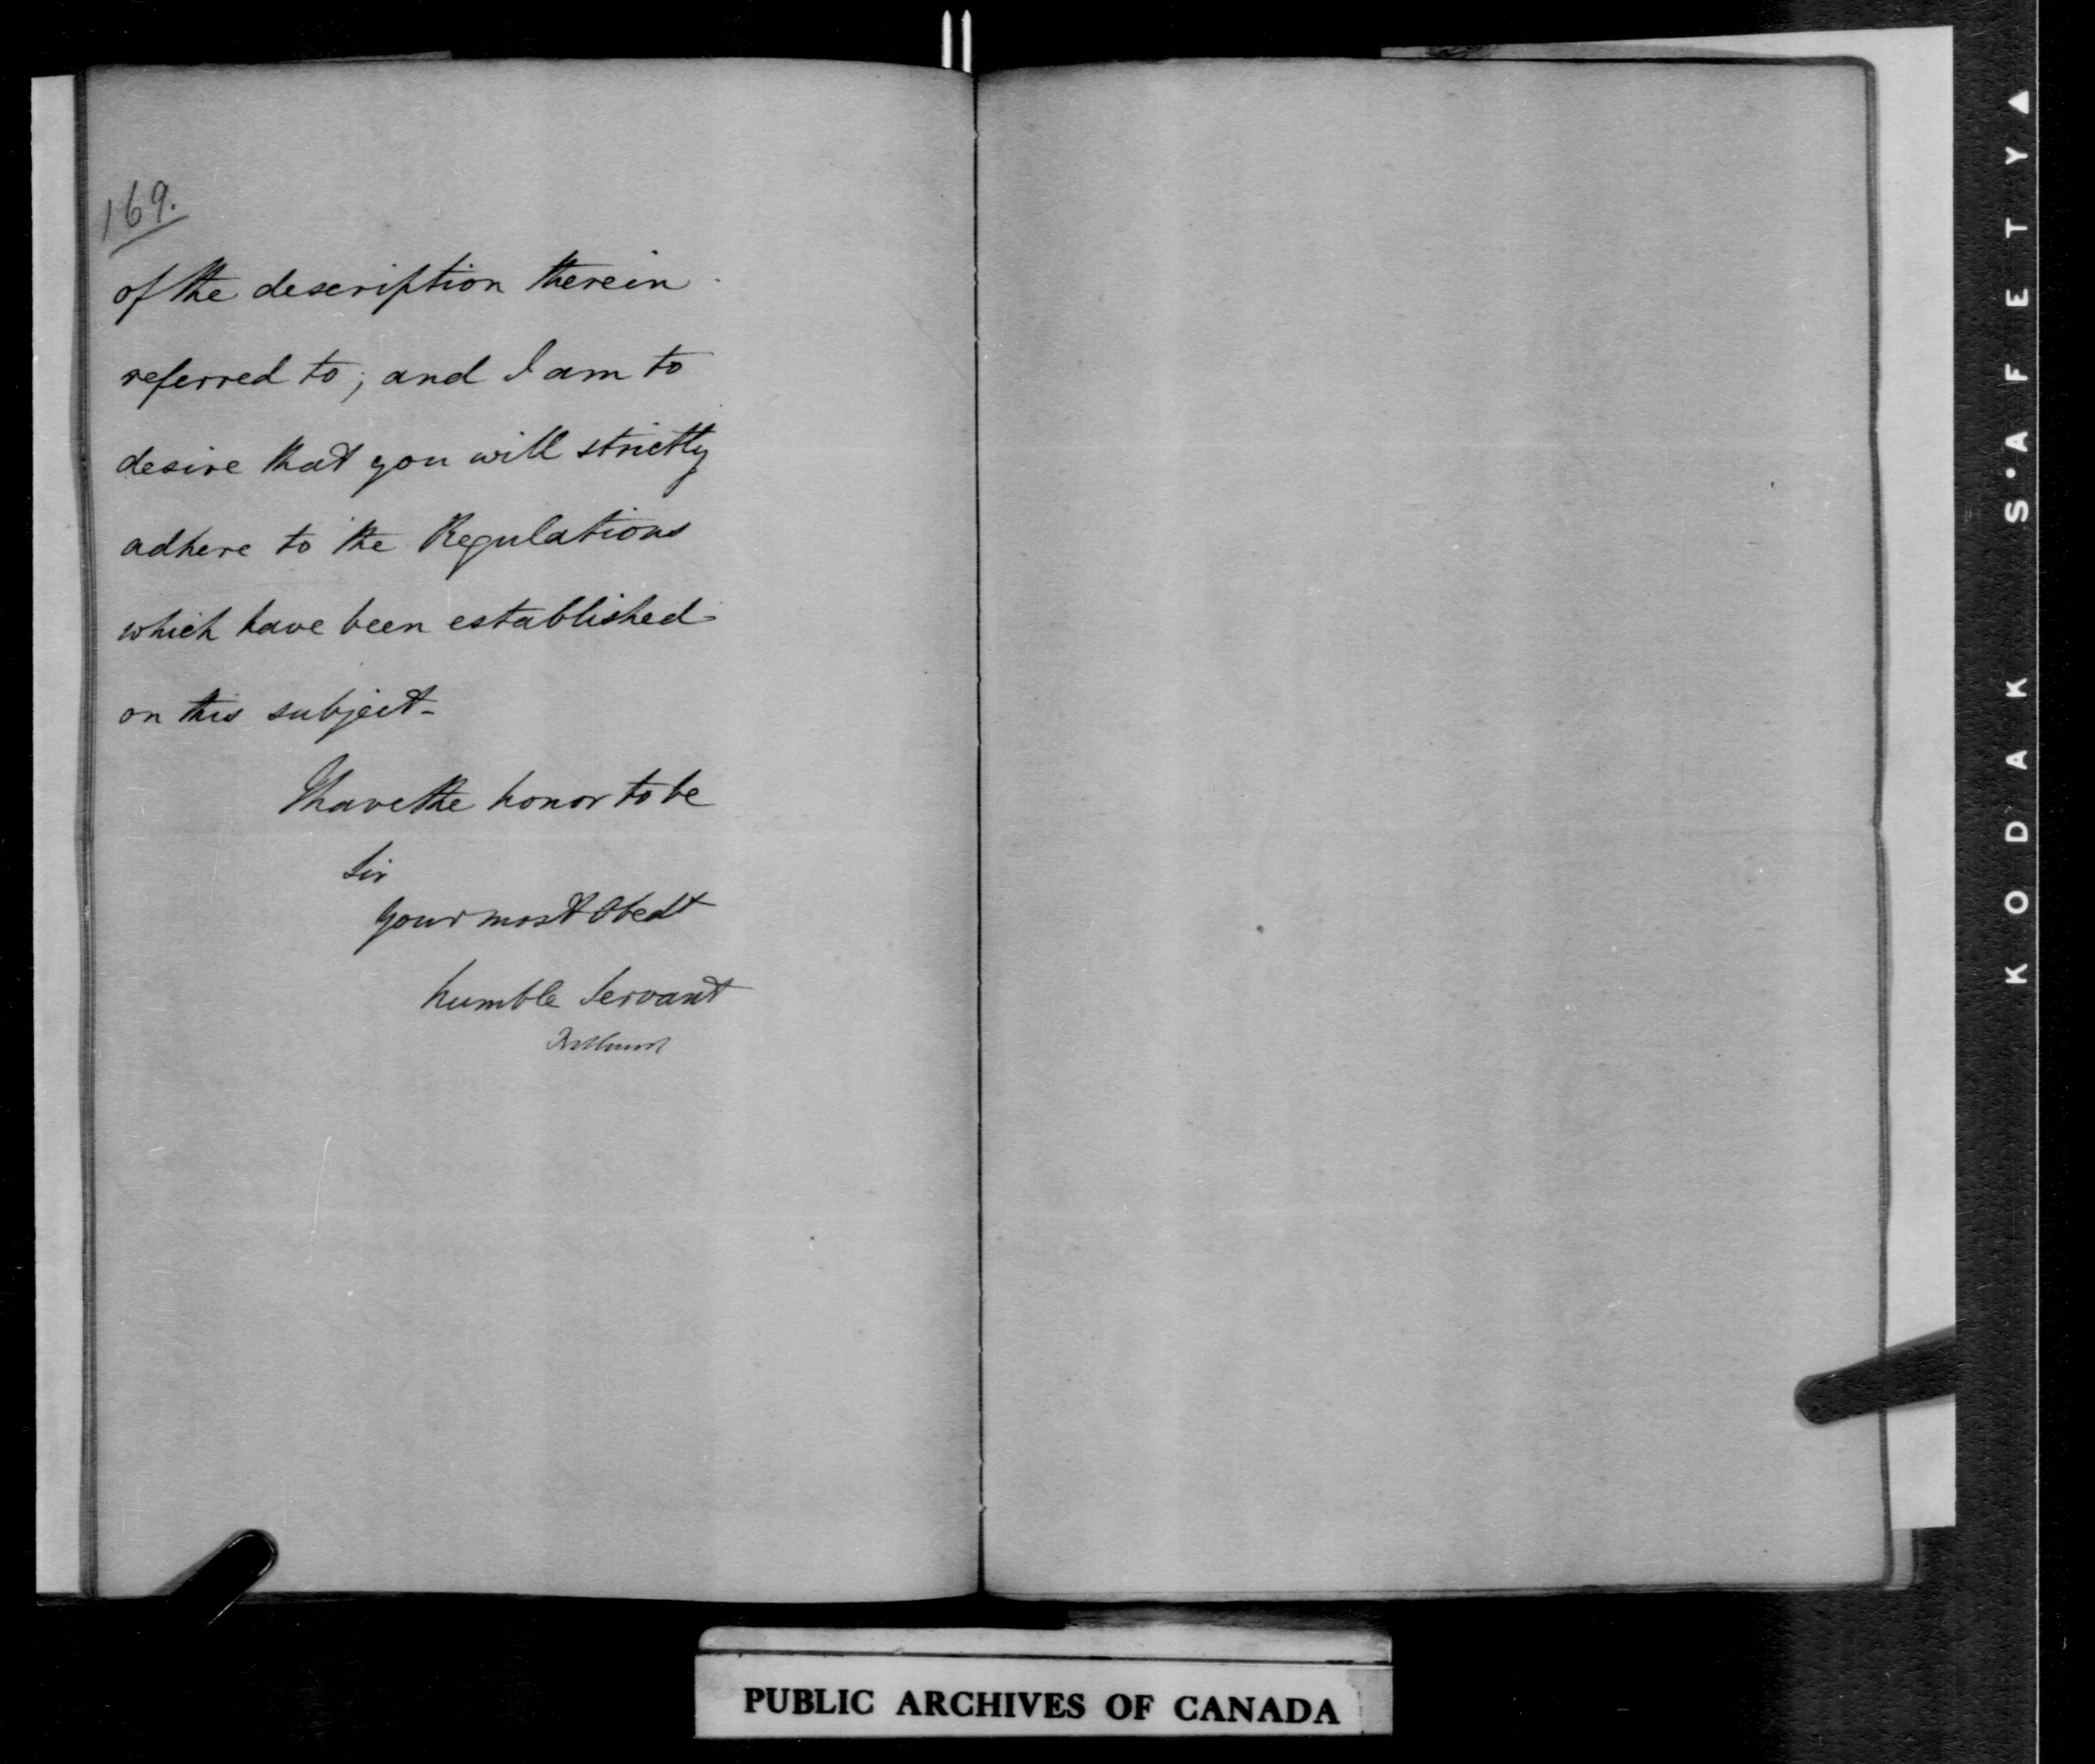 169.
of the description therein
referred to; and I am to
desire that you will strictly
adhere to the Regulations
which have been established
on this subject-
I have the honor to be
Sir
Your most Obedt
humble Servant
Bathurst
PUBLIC ARCHIVES OF CANADA
KODAK S•AFETY▲